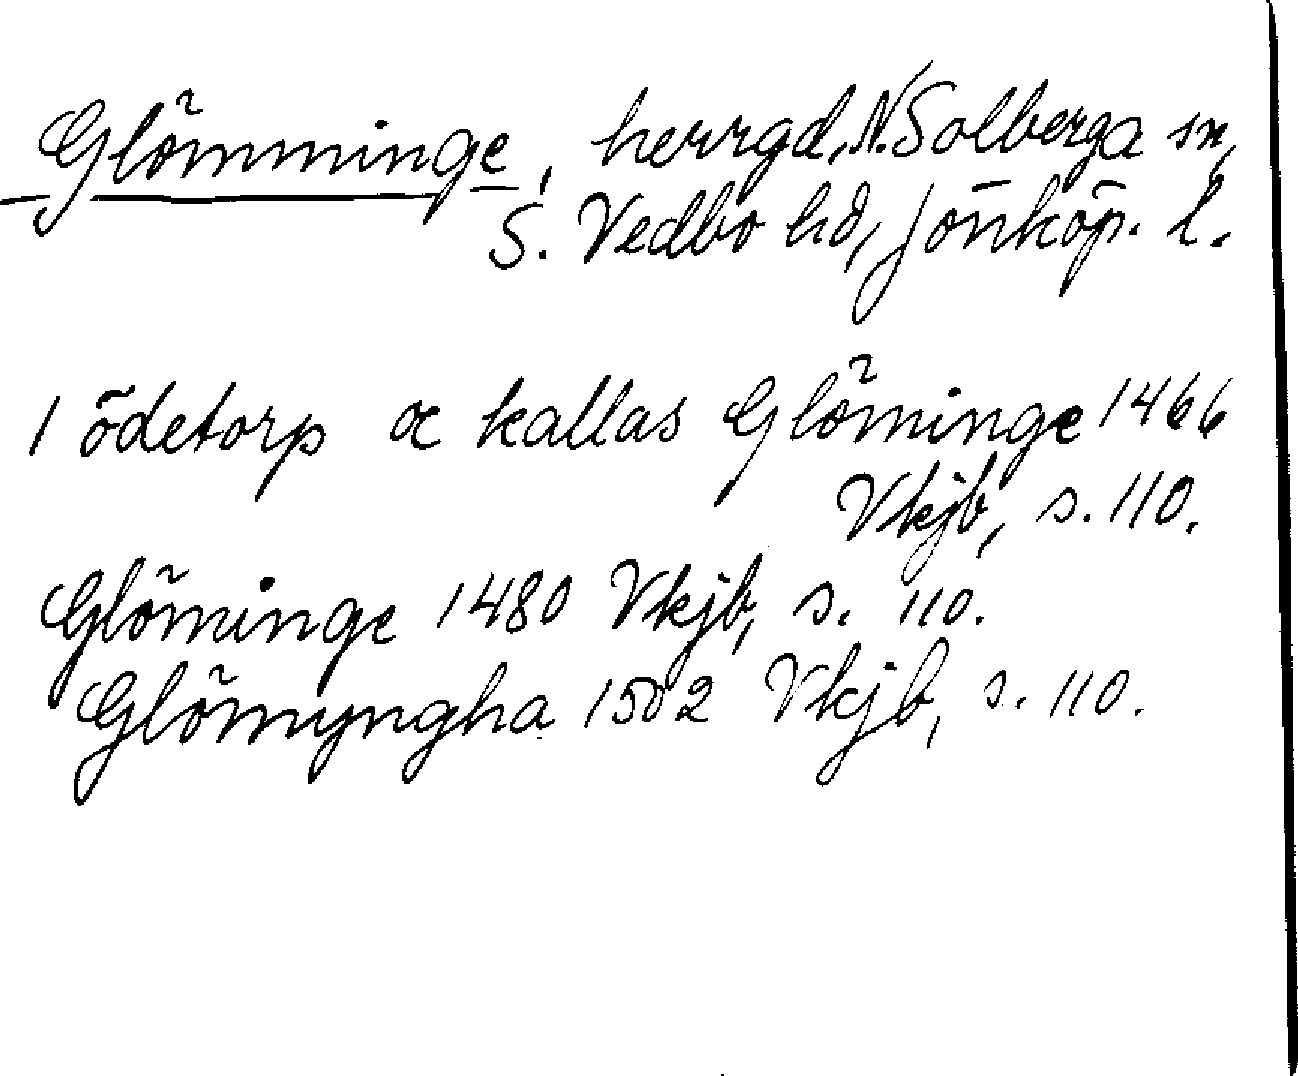 Glömminge, herrgd, N. Solberga sn,
S. Vedbo hd, Jönköp. l.
1 ödetorp oc kallas Glöminge 1466
Vkjb, s. 110.
Glöminge 1480 Vkjb, s. 110.
Glömyngha 1502 Vkjb, s. 110.